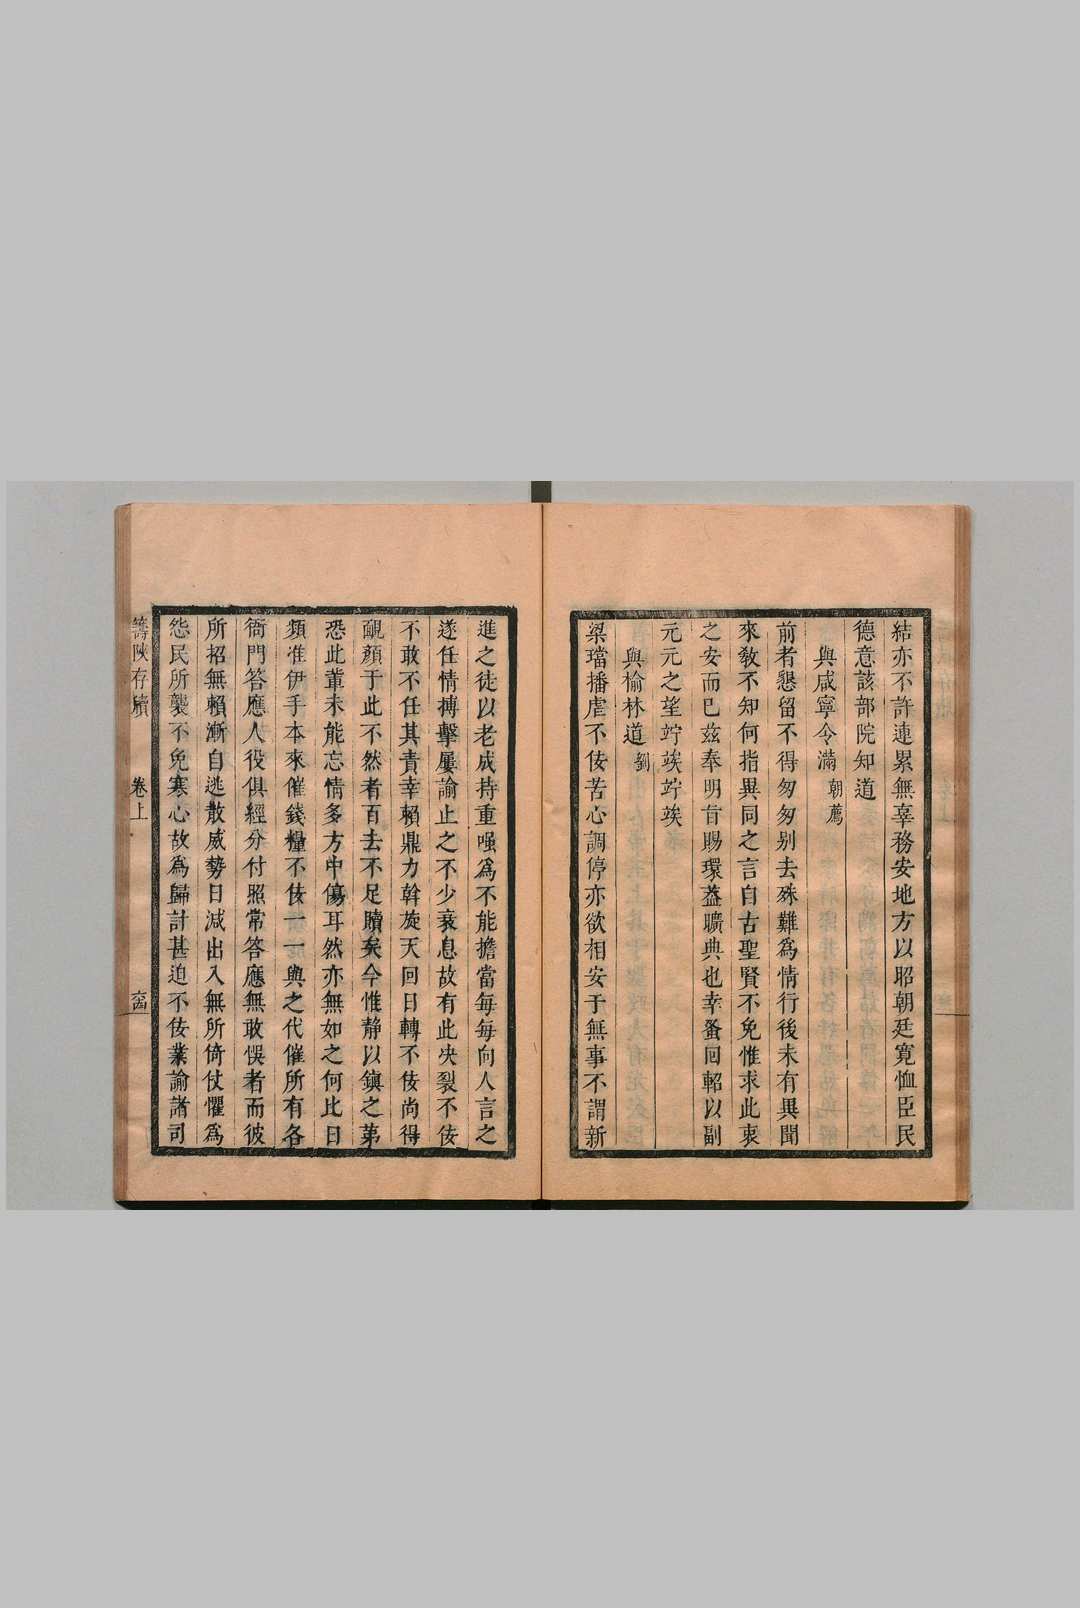 結亦不許連累無辜務安地方以昭朝廷寬恤臣民
德意該部院知道
與咸寧令滿朝薦
前者懇留不得匆匆别去殊難為情行後未有異聞
來敎不知何指異同之言自古聖賢不免惟求此衷
之安而已茲奉明旨賜環葢曠典也幸蚤回軺以副
元元之望竚竢竚竢
與榆林道劉
梁璫播虐不佞苦心調停亦欲相安于無事不謂新
進之徒以老成持重嗤為不能擔當每每向人言之
遂任情搏擊屢諭止之不少衰息故有此决裂不佞
不敢不任其責幸賴鼎力斡旋天回日轉不佞尚得
靦顏于此不然者百去不足贖矣今惟静以鎮之第
恐此輩未能忘情多方中傷耳然亦無如之何比日
類准伊手本來催錢糧不佞一一與之代催所有各
衙門答應人役俱經分付照常答應無敢悞者而彼
所招無賴漸自逃散威勢日減出入無所倚仗懼為
怨民所襲不免寒心故為歸計甚迫不佞業諭諸司
籌陝存牘
卷上